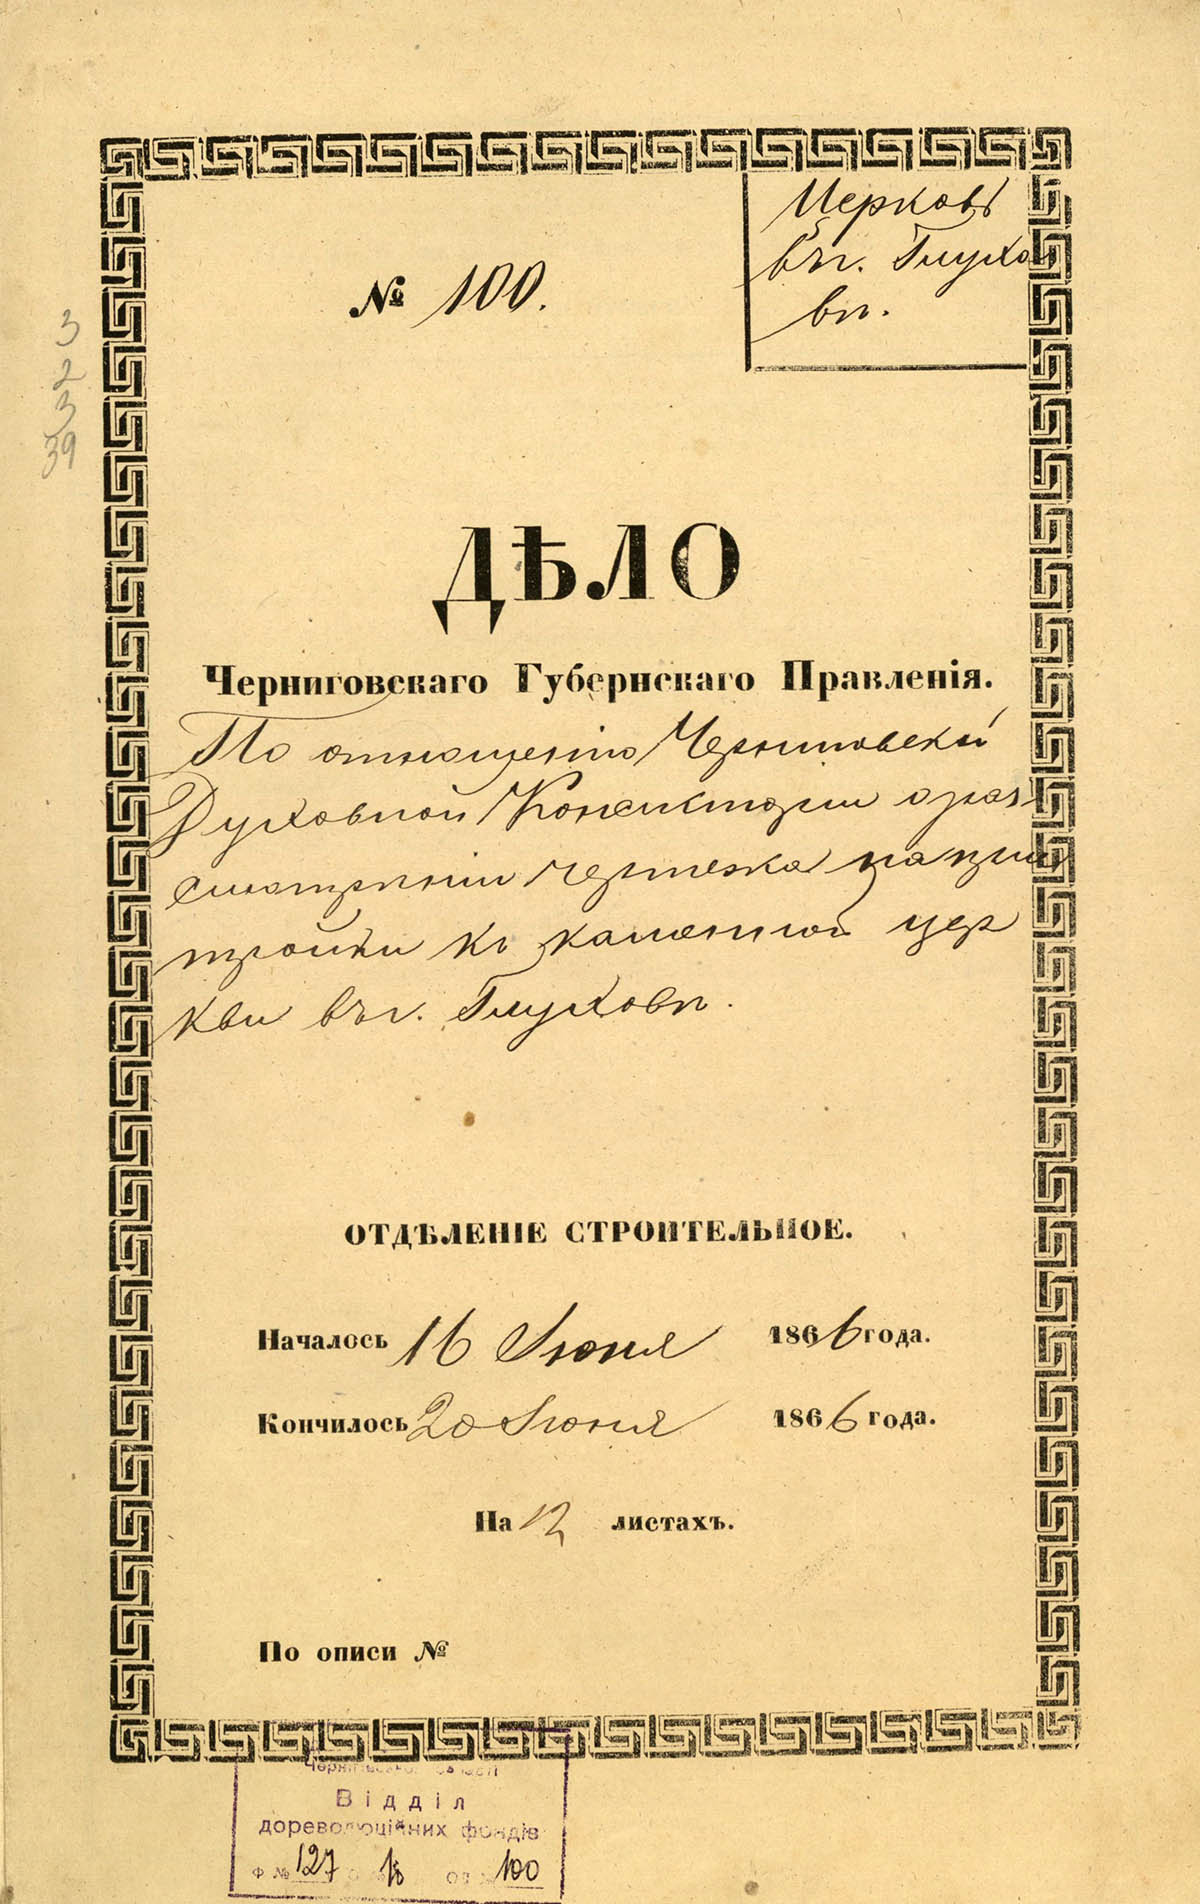 Церковь
въ г. Глухо
вѣ.
№ 100.
3
2
3
39
ДѢЛО
Черниговскаго Губернскаго Правленія.
По отношенію Черниговской
Духовной Консисторіи о раз
смотрѣніи чертежа на при
стройки къ каменной цер
кви въ г. Глуховѣ.
ОТДѢЛЕНІЕ СТРОИТЕЛЬНОЕ.
Началось 16 Іюня 1866 года.
Кончилось 20 Іюня 1866 года.
На 12 листахъ.
По описи №
Чернігівської області
Відділ
дореволюційних фондів
Ф № 127 О 100